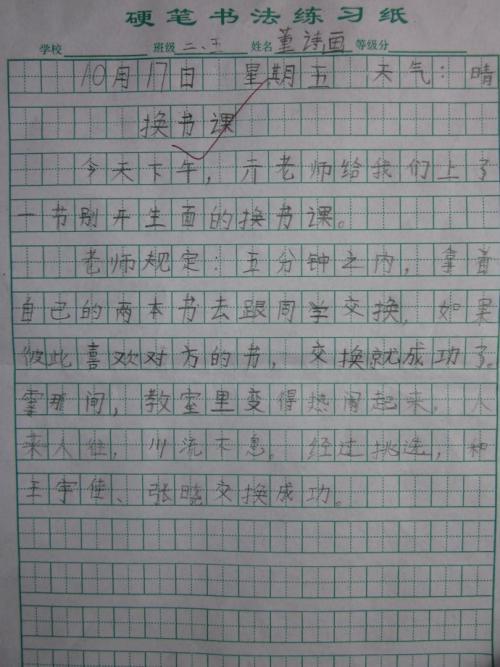 硬笔书法练习纸
学校 班级 二、五 姓名 董诗画 等级分
10月17日 星期五 天气：晴
换书课
今天下午，亓老师给我们上了
一节别开生面的换书课。
老师规定：五分钟之内，拿着
自己的两本书去跟同学交换，如果
彼此喜欢对方的书，交换就成功了。
霎那间，教室里变得热闹起来，人
来人往，川流不息。经过挑选，和
王宇佳、张晓交换成功。